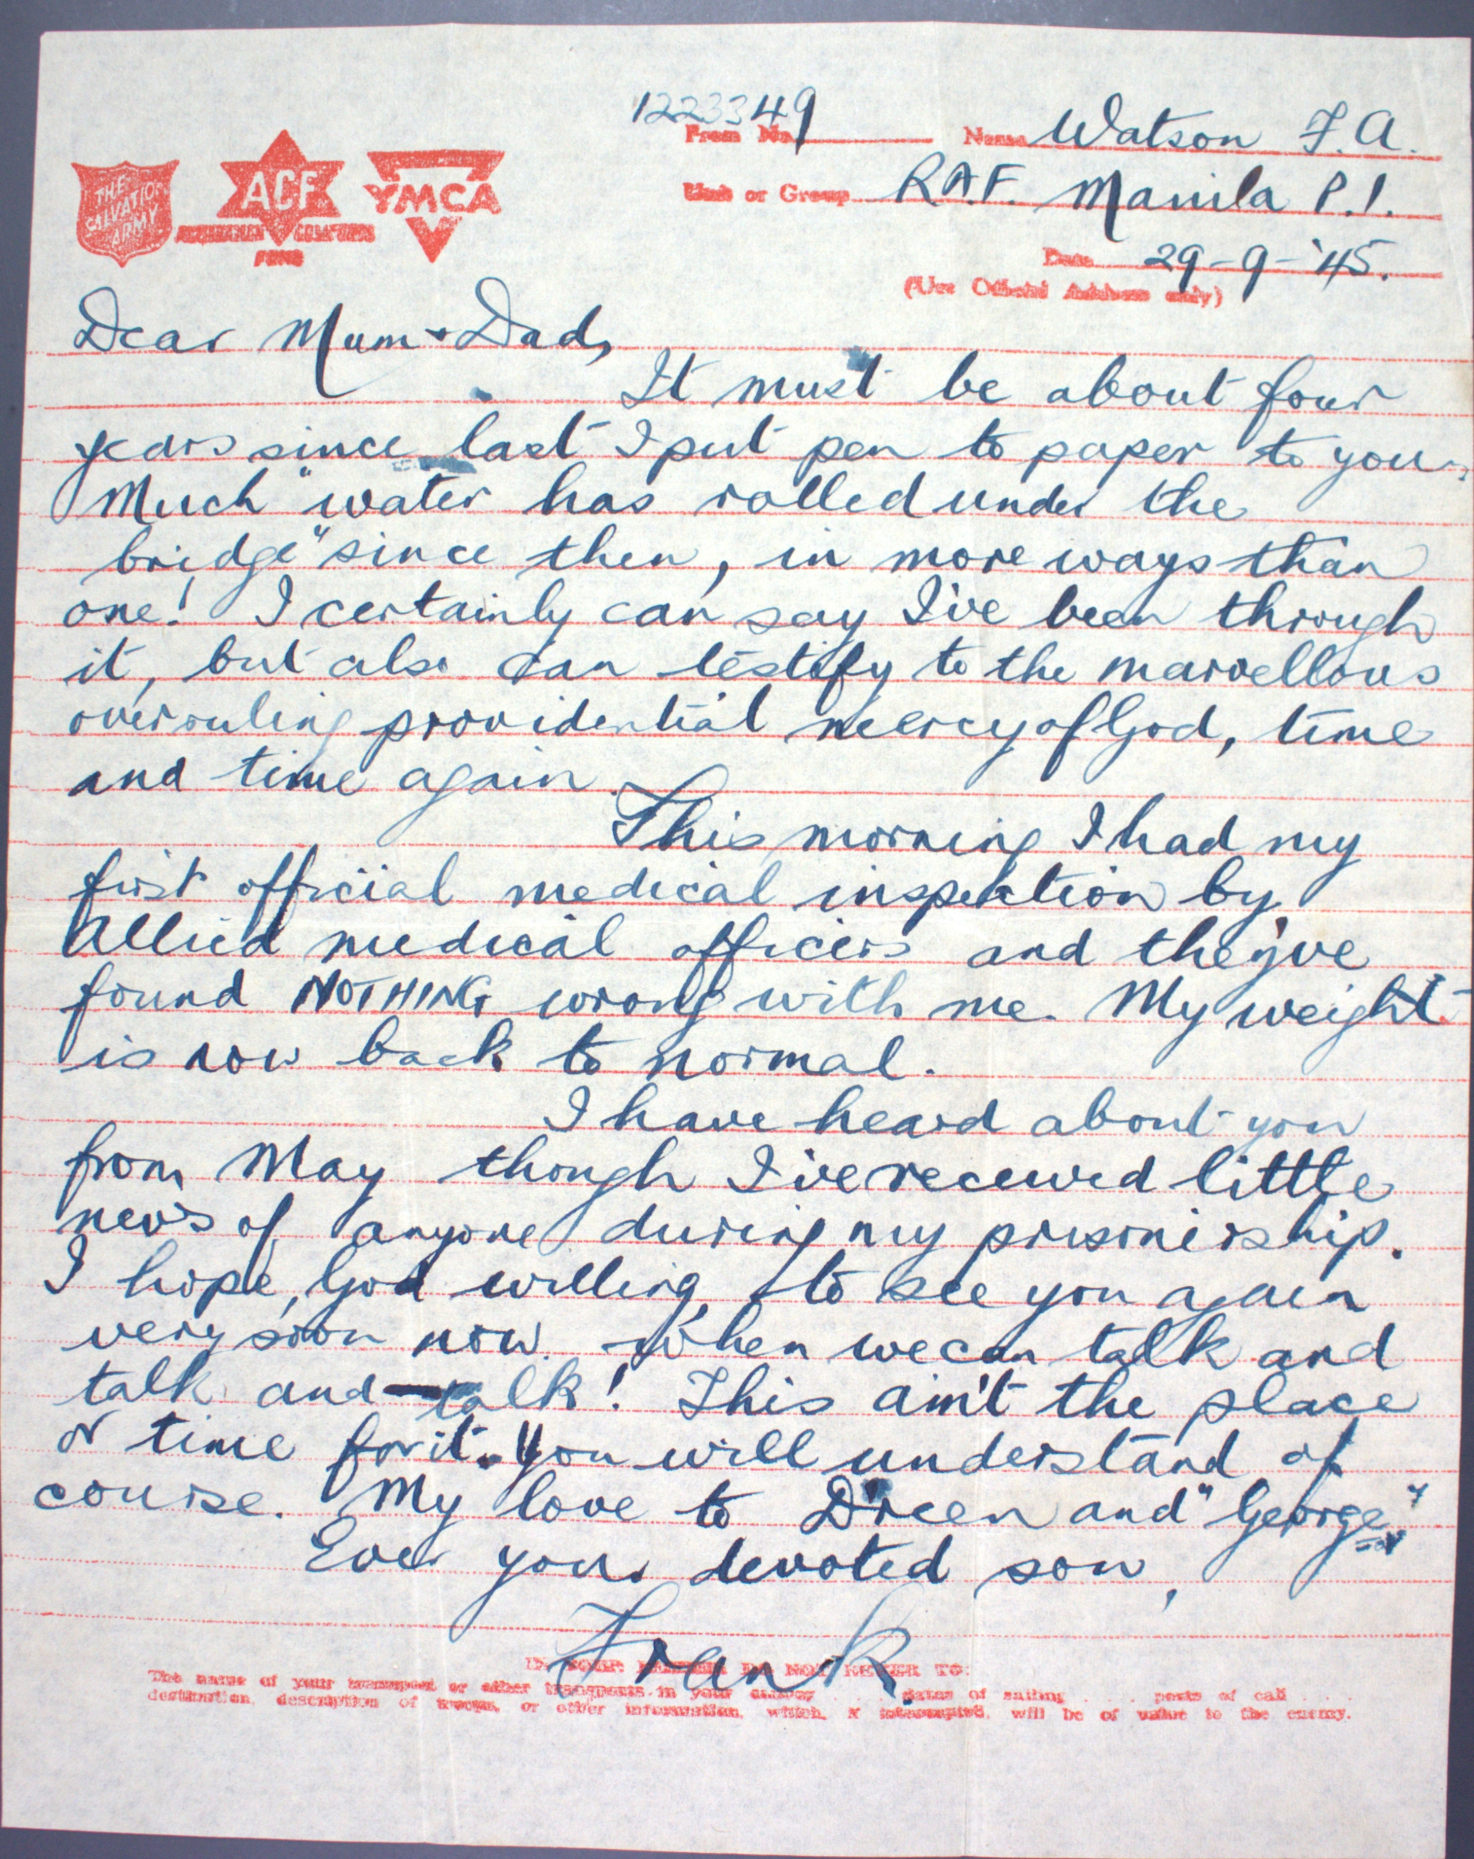 1223349
From No. Name Watson F.A.
THE SALVATION ARMY ACF AUSTRALIAN COMFORTS FUND YMCA
Unit or Group R.A.F. Manila P.I.
Date 29-9-'45.
(Use Official Address only)
Dear Mum & Dad,
It must be about four
years since last I put pen to paper to you.
Much "water has rolled under the
bridge" since then, in more ways than
one! I certainly can say I've been through
it, but also can testify to the marvellous
overruling providential mercy of God, time
and time again.
This morning I had my
first official medical inspection by
Allied medical officers and they've
found NOTHING wrong with me. My weight
is now back to normal.
I have heard about you
from May though I've received little
news of anyone during my prisonership.
I hope, God willing, to see you again
very soon now when we can talk and
talk and talk! This ain't the place
or time for it. You will understand of
course. My love to Doreen and "George"
Ever your devoted son,
Frank.
IN YOUR LETTERS DO NOT REFER TO:
The name of your transport or other transports in your convoy .... dates of sailing .... ports of call ....
destination, description of troops, or other information, which, if intercepted, will be of value to the enemy.